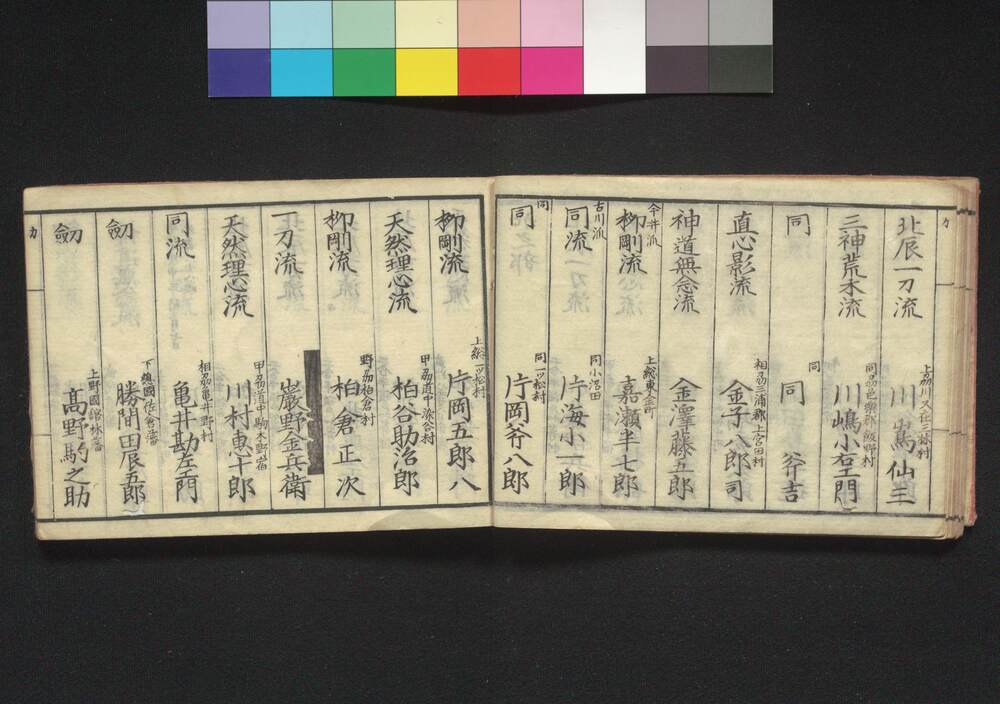 カ
北辰一刀流
川嶌仙三
三神荒木流
同刕邑樂郡飯野村
川嶋小右エ門
同
同
同斧吉
直心影流
相刕三浦郡上宮田村
金子八郎司
神道無念流
金澤藤五郎
今井流
柳剛流
上総東金町
嘉瀬半七郎
古川流
同流
同小沼田
片海小一郎
同
同
同一ツ松村
片岡斧八郎
柳剛流
上総一ツ松村
片岡五郎八
天然理心流
甲刕道中染谷村
柏谷助治郎
柳剛流
野刕柏倉村
柏倉正次
一刀流
巌野金兵衛
天然理心流
甲刕道中駒木野宿
川村恵十郎
同流
相刕亀井野村
亀井勘左エ門
劔
下總國佐倉藩
勝間田辰五郎
劔
上野國舘林藩
髙野駒之助
カ